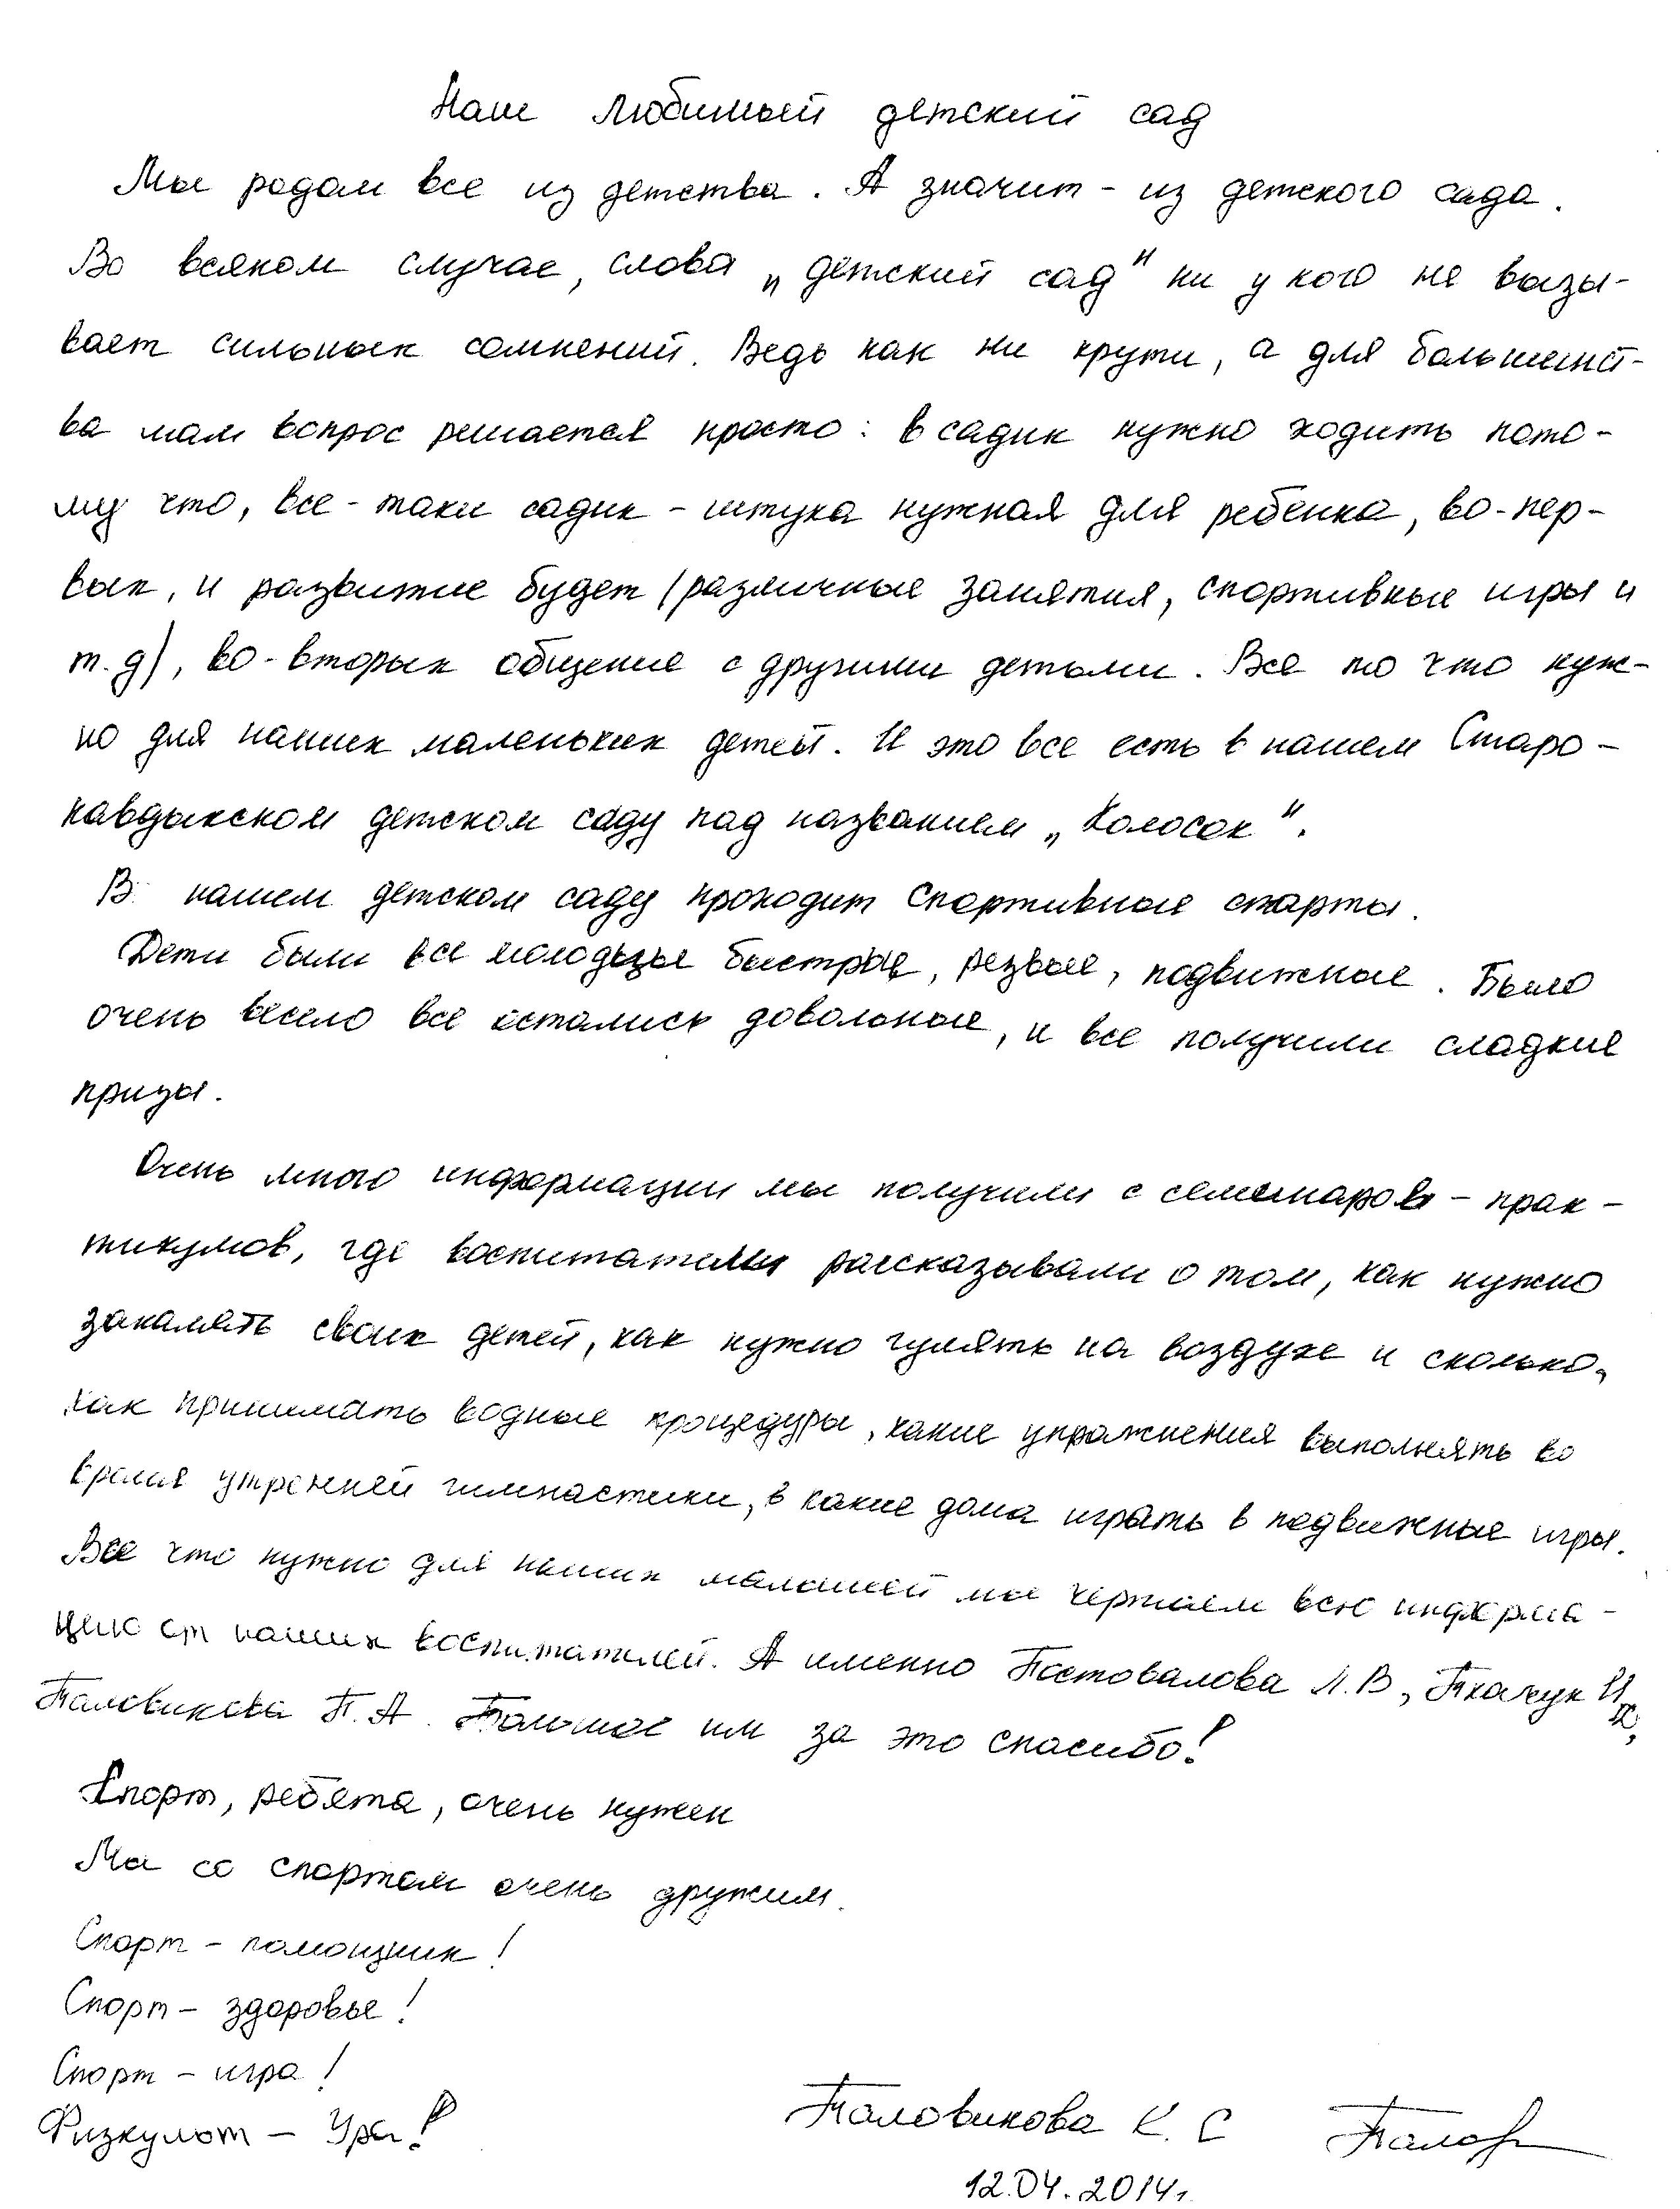 Наш любимый детский сад
Мы родом все из детства. А значит - из детского сада.
Во всяком случае, слова „детский сад" ни у кого не вызы-
вает сильных сомнений. Ведь как ни крути, а для большинст-
ва мам вопрос решается просто: в садик нужно ходить пото-
му что, все-таки садик - штука нужная для ребенка, во-пер-
вых, и развитие будет (различные занятия, спортивные игры и
т.д), во-вторых общение с другими детьми. Все то что нуж-
но для наших маленьких детей. И это все есть в нашем Старо-
кавдыкском детском саду под названием „Колосок".
В нашем детском саду проходит спортивные старты.
Дети были все молодцы быстрые, резвые, подвижные. Было
очень весело все остались довольные, и все получили сладкие
призы.
Очень много информации мы получили с семинаров - прак-
тикумов, где воспитатели рассказывали о том, как нужно
закалять своих детей, как нужно гулять на воздухе и сколько,
как принимать водные процедуры, какие упражнения выполнять во
время утренней гимнастики, в какие дома играть в подвижные игры.
Все что нужно для наших малышей мы черпаем всю информа-
цию от наших воспитателей. А именно Постовалова Л.В, Ткачук И
Половикова П.А. Большое им за это спасибо!
Спорт, ребята, очень нужен
Мы со спортом очень дружим.
Спорт - помощник!
Спорт - здоровье!
Спорт - игра!
Физкульт - Ура!
Половикова К.С
12.04.2014г.